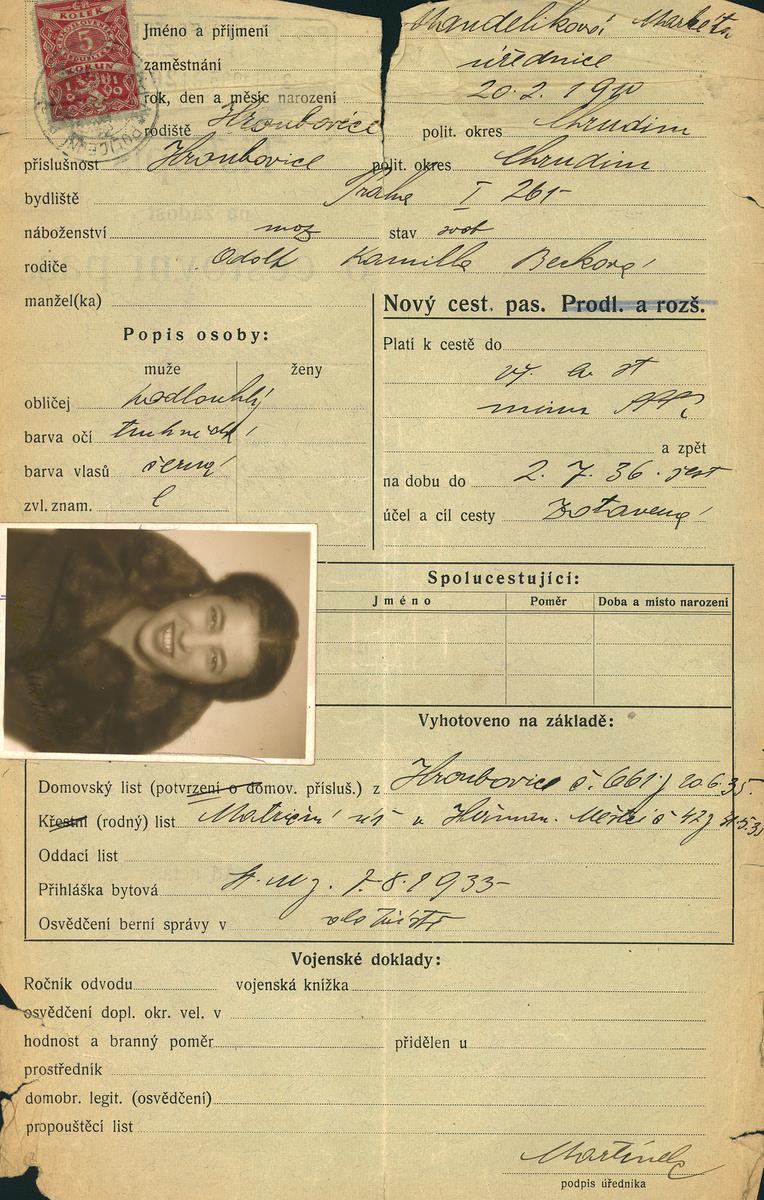 KOLEK
5
KORUN
Jméno a příjmení Mandelíková Markéta
zaměstnání úřednice
rok, den a měsíc narození 20. 2. 1910
rodiště Hroubovice polit. okres Chrudim
příslušnost Hroubovice polit. okres Chrudim
bydliště Praha I 261
náboženství moz stav svob
rodiče Adolf Kamilla Becková
manžel(ka)
Nový cest. pas. Prodl. a rozš.
Popis osoby:
muže ženy
obličej podlouhlý
barva očí
barva vlasů černá
zvl. znam.
Platí k cestě do
mimo
a zpět
na dobu do 2. 7. 36
účel a cíl cesty Zotavená
Spolucestující:
Jméno Poměr Doba a místo narození
Vyhotoveno na základě:
Domovský list (potvrzení o domov. přísluš.) z Hroubovice č. 661/ 20.6.35.
Křestní (rodný) list Matriční v Heřman. Městci č 42
Oddací list
Přihláška bytová 1933
Osvědčení berní správy v
Vojenské doklady:
Ročník odvodu vojenská knížka
osvědčení dopl. okr. vel. v
hodnost a branný poměr přidělen u
prostředník
domobr. legit. (osvědčení)
propouštěcí list
Martínek
podpis úředníka